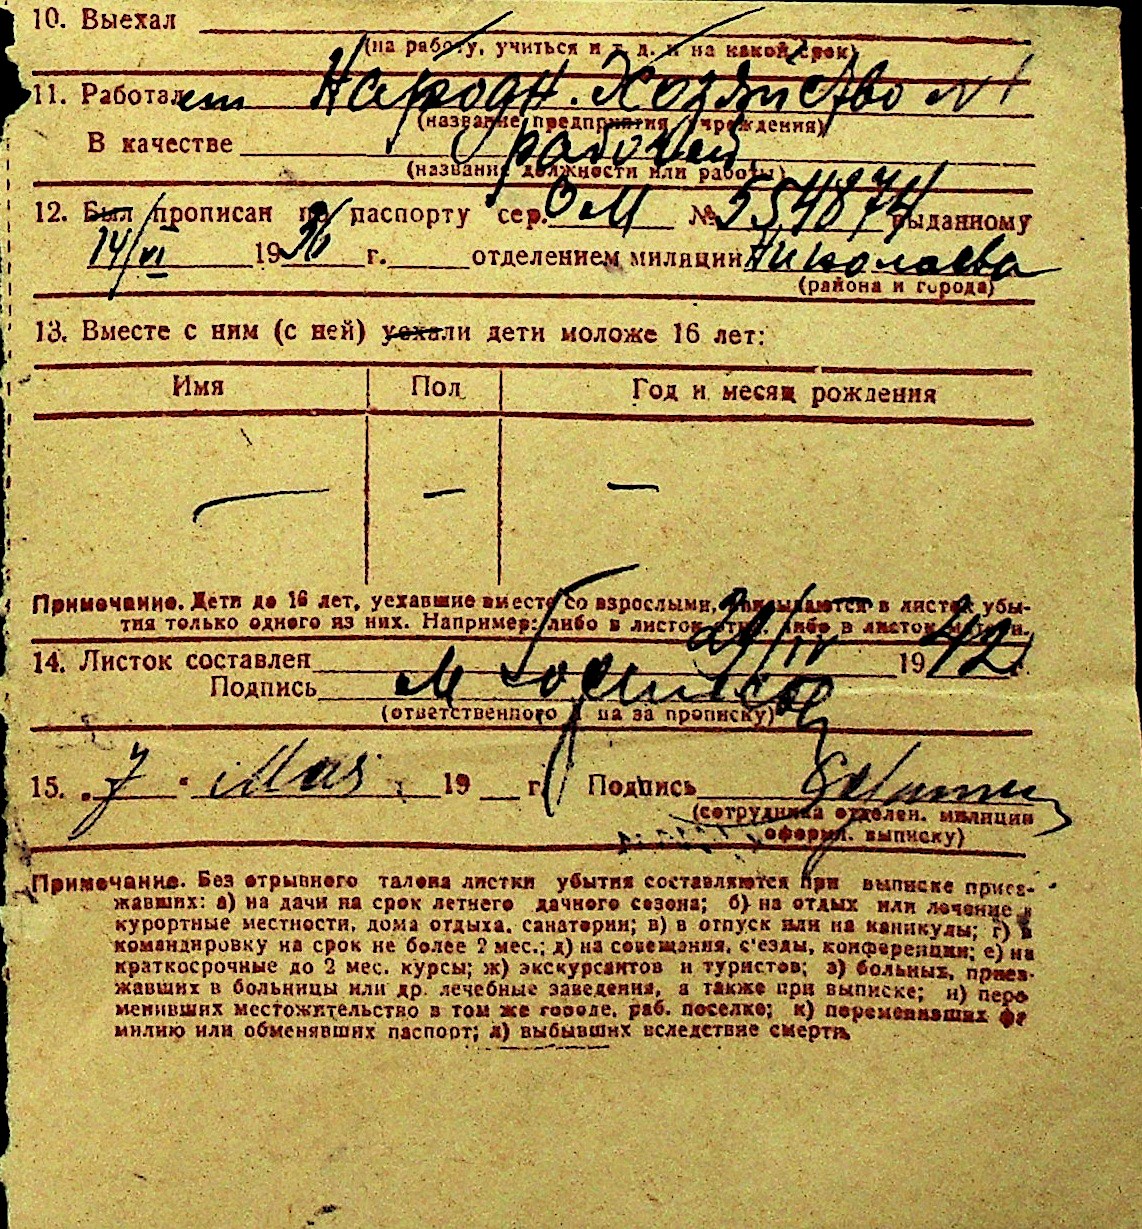 10. Выехал
(на работу, учиться и т. д. и на какой срок)
11. Работает Народн. Хозяйство №1
(название предприятия учреждения)
В качестве рабочей
(название должности или работы)
12. Был прописан по паспорту сер. ОМ № 554874 выданному
14/VI 1936 г. отделением милиции Николаева
(района и города)
13. Вместе с ним (с ней) уехали дети моложе 16 лет:
Имя Пол Год и месяц рождения
— — —
Примечание. Дети до 16 лет, уехавшие вместе со взрослыми, вписываются в листок убы-
тия только одного из них. Например: либо в листок отца, либо в листок матери.
14. Листок составлен 29/IV 1942
Подпись
(ответственного лица за прописку)
15. „7" Мая 19 г. Подпись
(сотрудника отделен. милиции
оформ. выписку)
Примечание. Без отрывного талона листки убытия составляются при выписке приез-
жавших: а) на дачи на срок летнего дачного сезона; б) на отдых или лечение в
курортные местности, дома отдыха, санатории; в) в отпуск или на каникулы; г) в
командировку на срок не более 2 мес.; д) на совещания, с'езды, конференции; е) на
краткосрочные до 2 мес. курсы; ж) экскурсантов и туристов; з) больных, приез-
жавших в больницы или др. лечебные заведения, а также при выписке; и) пере
менивших местожительство в том же городе, раб. поселке; к) переменивших фа
милию или обменявших паспорт; л) выбывших вследствие смерти.